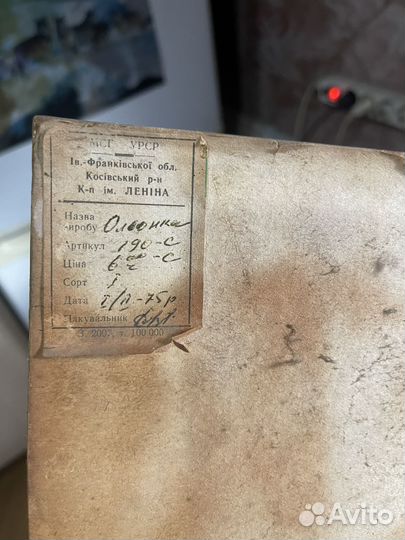 МСГ УРСР
Ів.-Франківської обл.
Косівський р-н
К-п ім. ЛЕНІНА
Назва
виробу
Артикул 190-С
Ціна 6
Сорт I
Дата -75р
Пакувальник
З. 200, т. 100 000
Avito